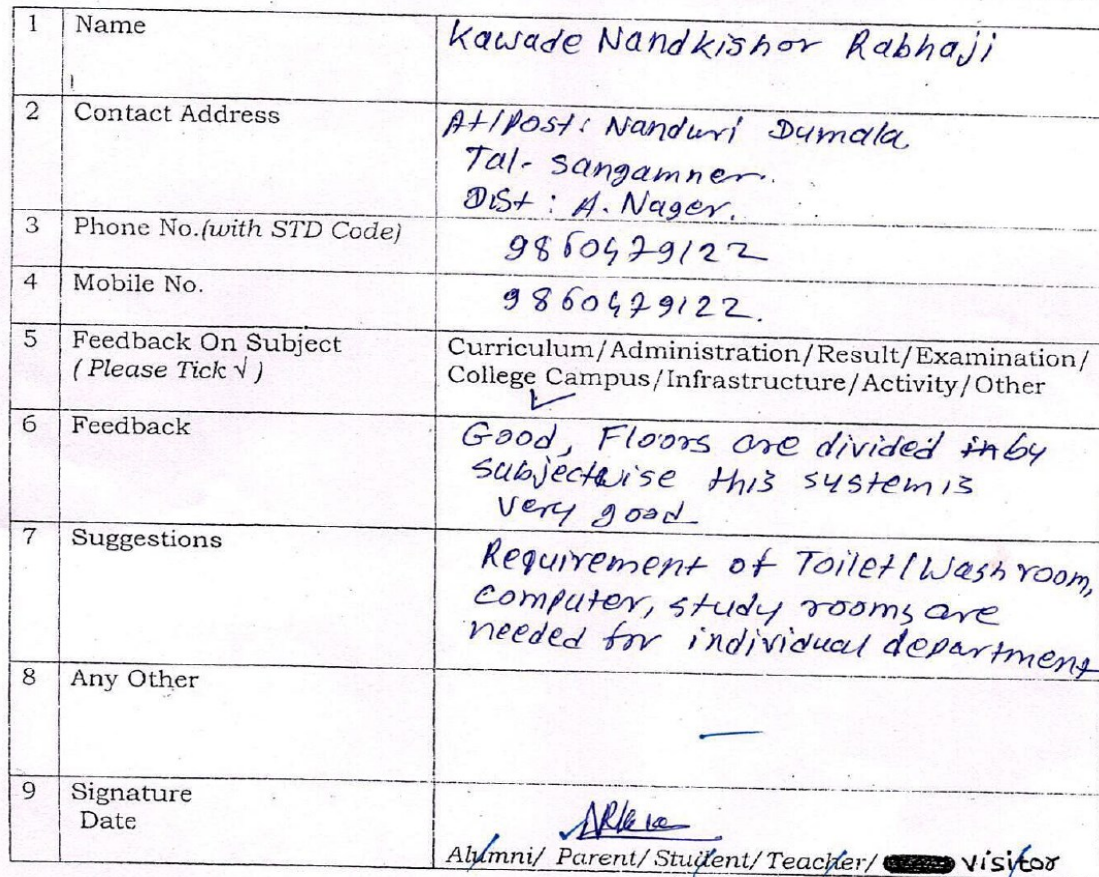 1 Name Kawade Nandkishor Rabhaji
2 Contact Address At/Post: Nanduri Dumala
Tal- Sangamner.
Dist: A. Nager.
3 Phone No.(with STD Code) 9860479122
4 Mobile No. 9860479122.
5 Feedback On Subject Curriculum/Administration/Result/Examination/
( Please Tick √ ) College Campus/Infrastructure/Activity/Other
6 Feedback Good, Floors are divided by
subjectwise this system is
very good
7 Suggestions Requirement of Toilet/Wash room,
computer, study rooms are
needed for individual department
8 Any Other —
9 Signature
Date
Alumni/ Parent/ Student/ Teacher/ visitor